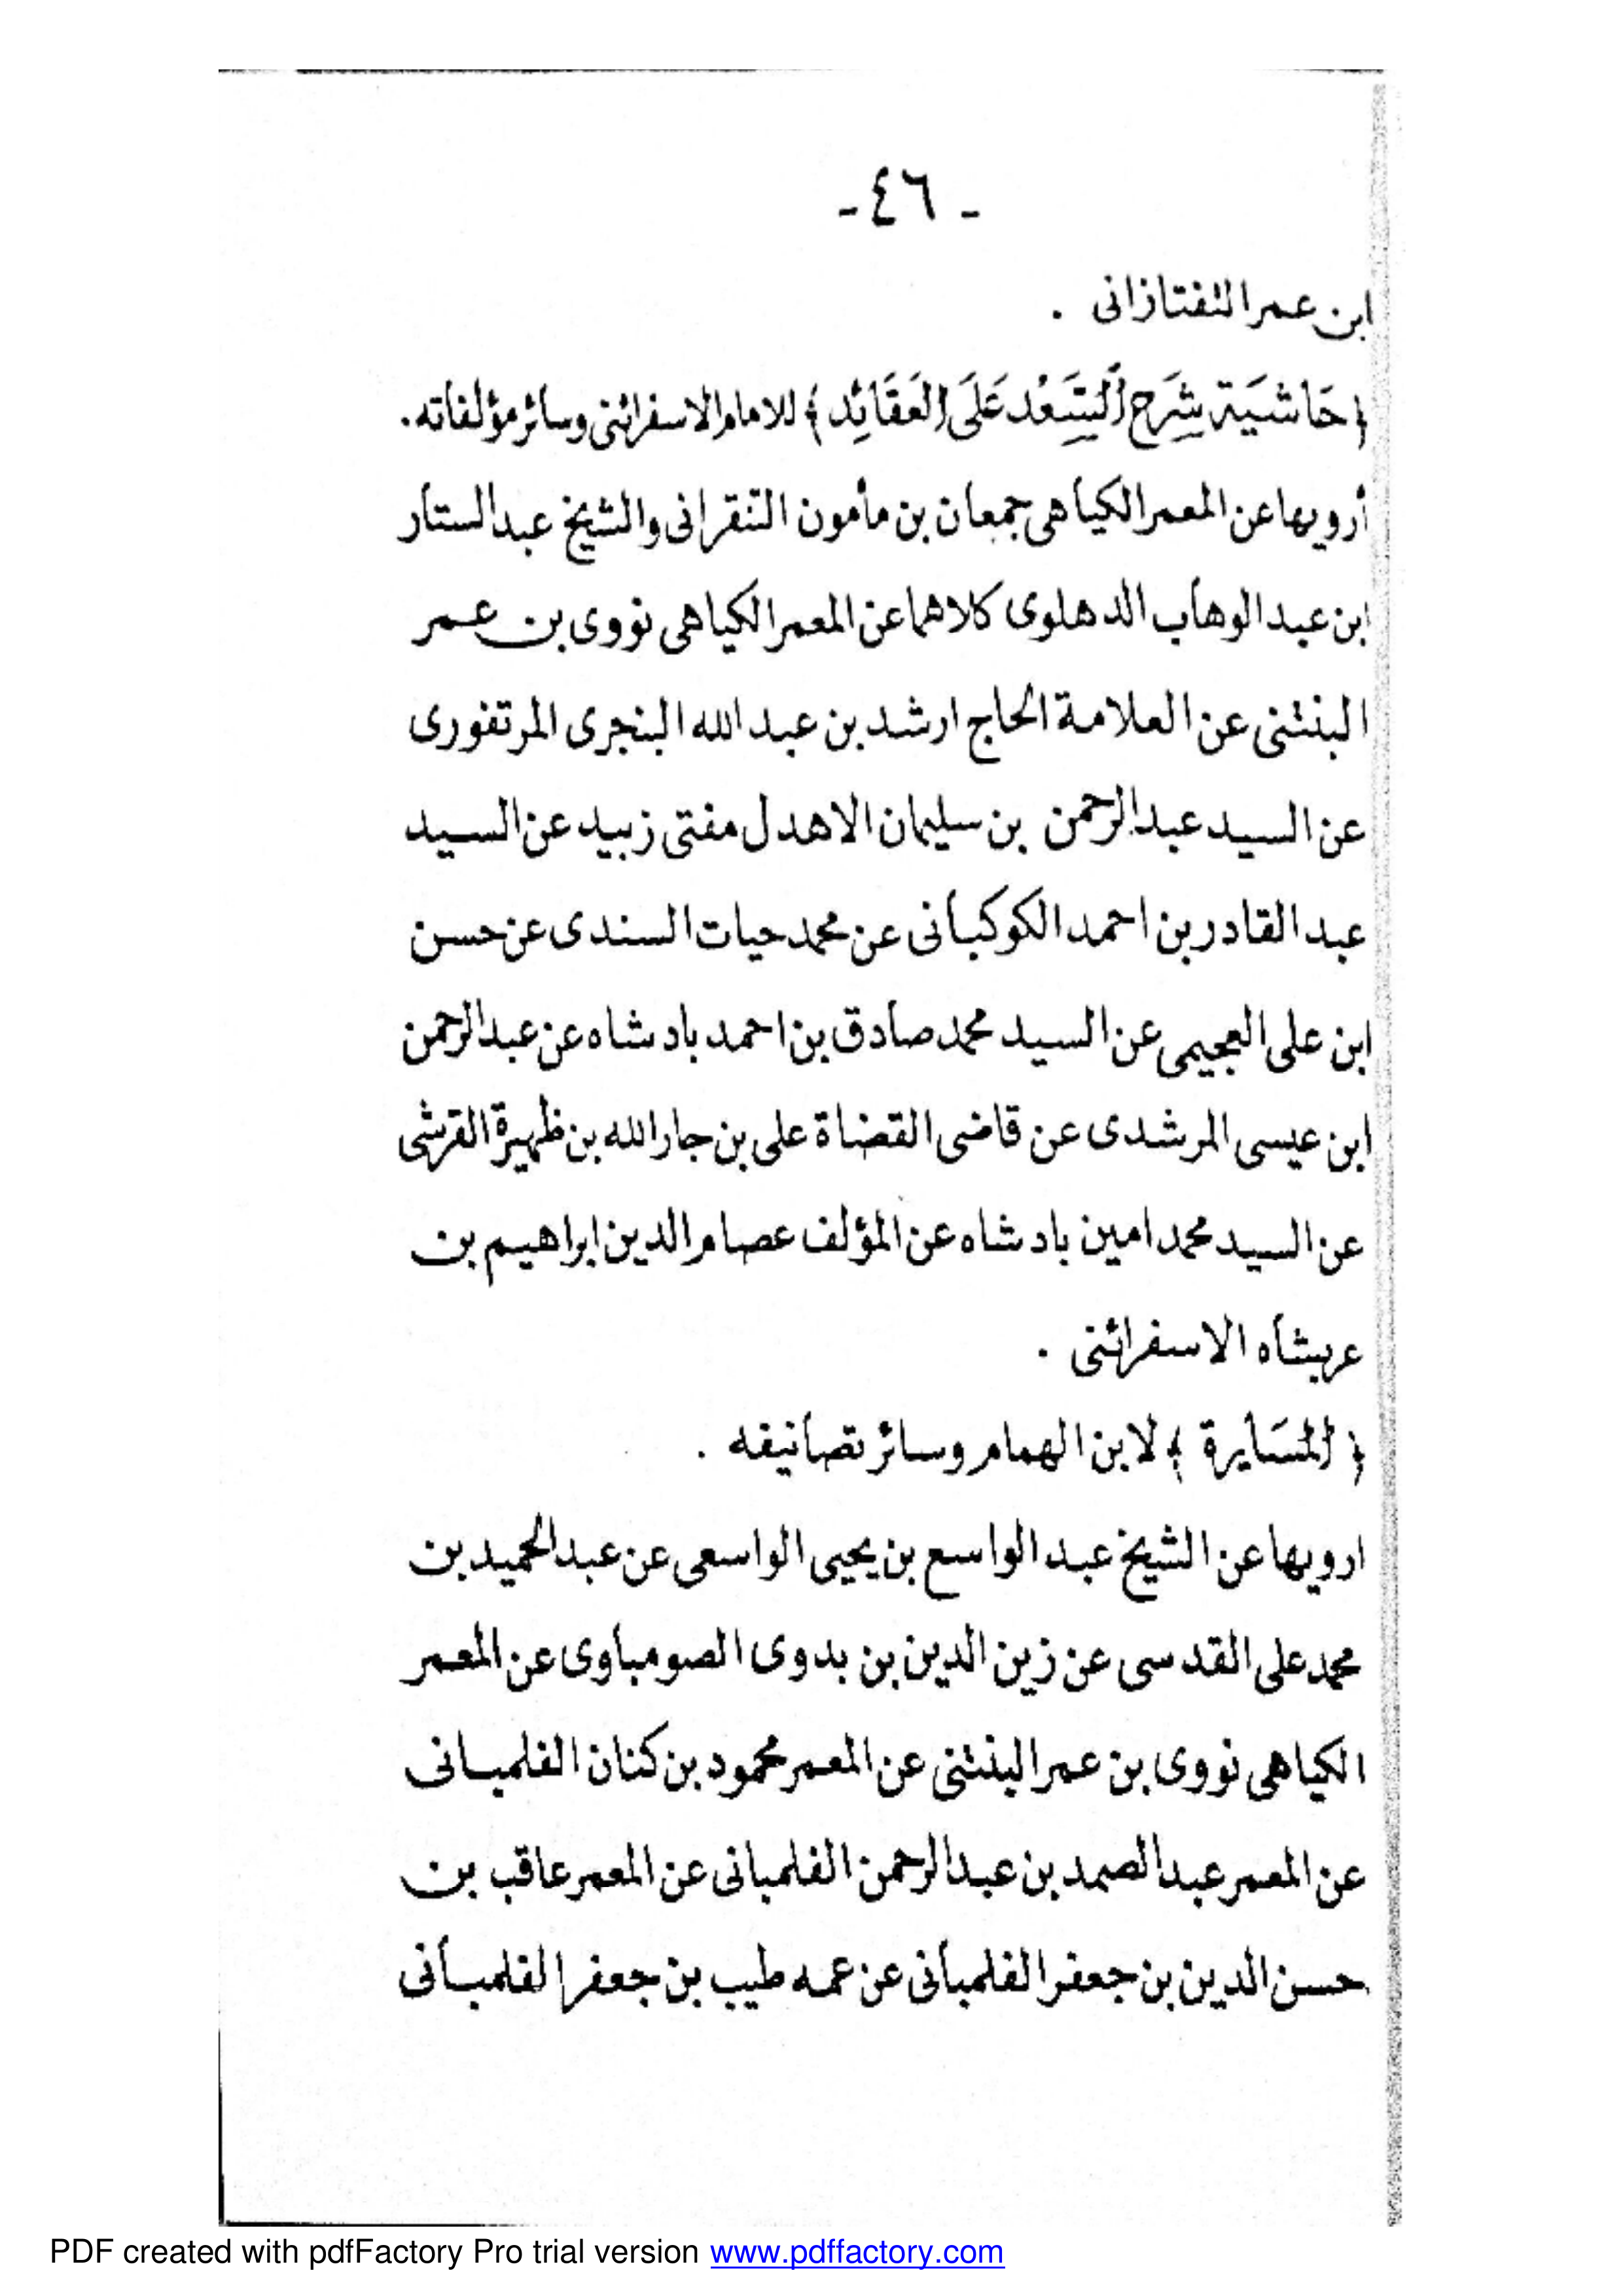 - ٤٦ -
ابن عمر التفتازانى .
﴿ حَاشيَة شَرح السَّعْد عَلَى العَقَائِد ﴾ للامام الاسفرائنى وسائر مؤلفاته .
أرويها عن المعمر الكياهى جمعان بن مأمون التنقرانى والشيخ عبد الستار
ابن عبد الوهاب الدهلوى كلاهما عن المعمر الكياهى نووى بن عمر
البنتنى عن العلامة الحاج ارشد بن عبد الله البنجرى المرتفورى
عن السيد عبد الرحمن بن سليمان الاهدل مفتى زبيد عن السيد
عبد القادر بن احمد الكوكبانى عن محمد حيات السندى عن حسن
ابن على العجيمى عن السيد محمد صادق بن احمد بادشاه عن عبد الرحمن
ابن عيسى المرشدى عن قاضى القضاة على بن جار الله بن ظهيرة القرشى
عن السيد محمد امين بادشاه عن المؤلف عصام الدين ابراهيم بن
عربشاه الاسفرائنى .
﴿ المسَايرة ﴾ لابن الهمام وسائر تصانيفه .
ارويها عن الشيخ عبد الواسع بن يحيى الواسعى عن عبد الحميد بن
محمد على القدسى عن زين الدين بن بدوى الصومباوى عن المعمر
الكياهى نووى بن عمر البنتنى عن المعمر محمود بن كنان الفلمبانى
عن المعمر عبد الصمد بن عبد الرحمن الفلمبانى عن المعمر عاقب بن
حسن الدين بن جعفر الفلمبانى عن عمه طيب بن جعفر الفلمبانى
PDF created with pdfFactory Pro trial version www.pdffactory.com